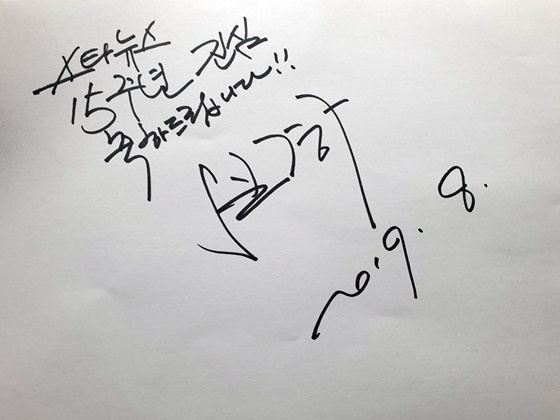 스타뉴스
15주년 진심
축하드립니다!!
2019. 8.